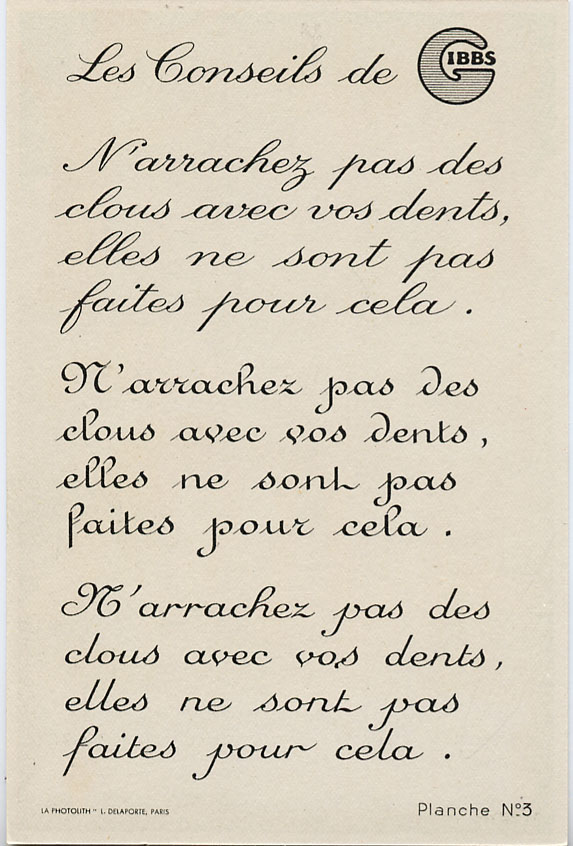 Les Conseils de GIBBS
N'arrachez pas des
clous avec vos dents,
elles ne sont pas
faites pour cela.
N'arrachez pas des
clous avec vos dents,
elles ne sont pas
faites pour cela.
N'arrachez pas des
clous avec vos dents,
elles ne sont pas
faites pour cela.
LA PHOTOLITH" L. DELAPORTE, PARIS
Planche Nº3